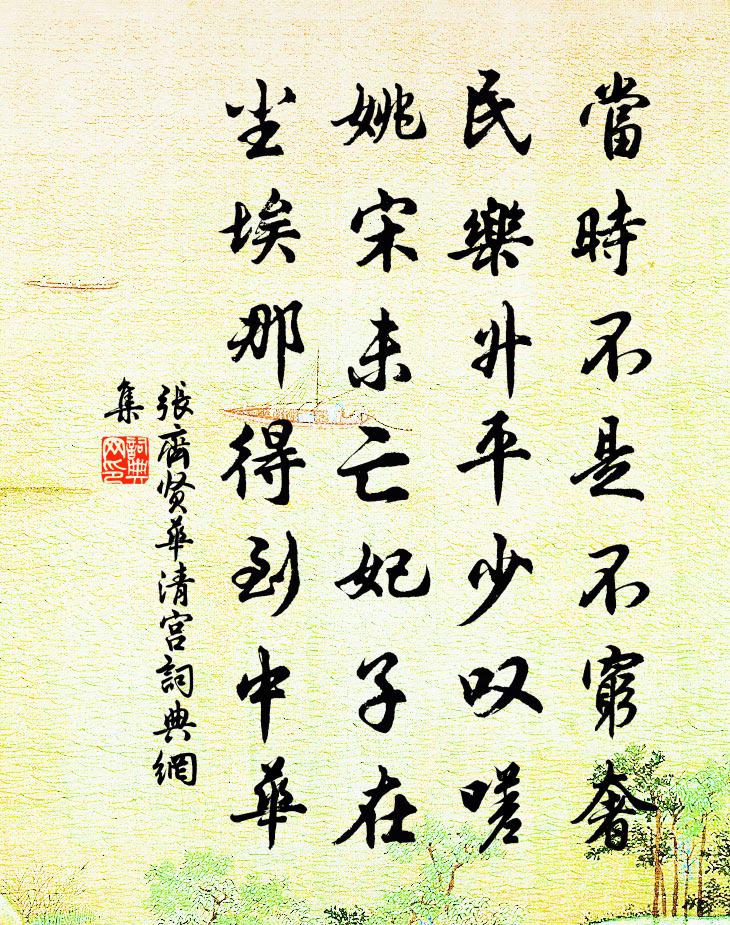 當時不是不窮奢
民樂升平少叹嗟
姚宋未亡妃子在
尘埃那得到中華
張齊贤華清宫詞典網
集
詞典
网印